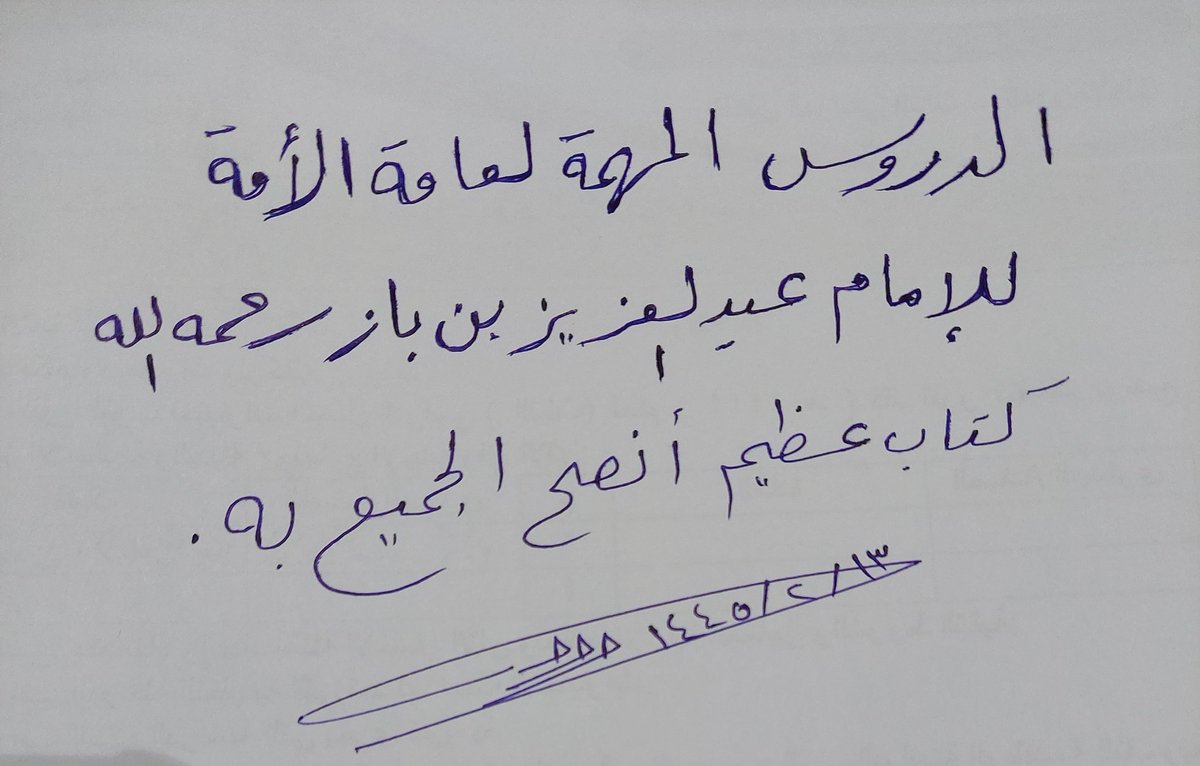 الدروس المهمة لعامة الأمة
للإمام عبد العزيز بن باز رحمه الله
كتاب عظيم أنصح الجميع به .
١٣ / ٢ / ١٤٤٥